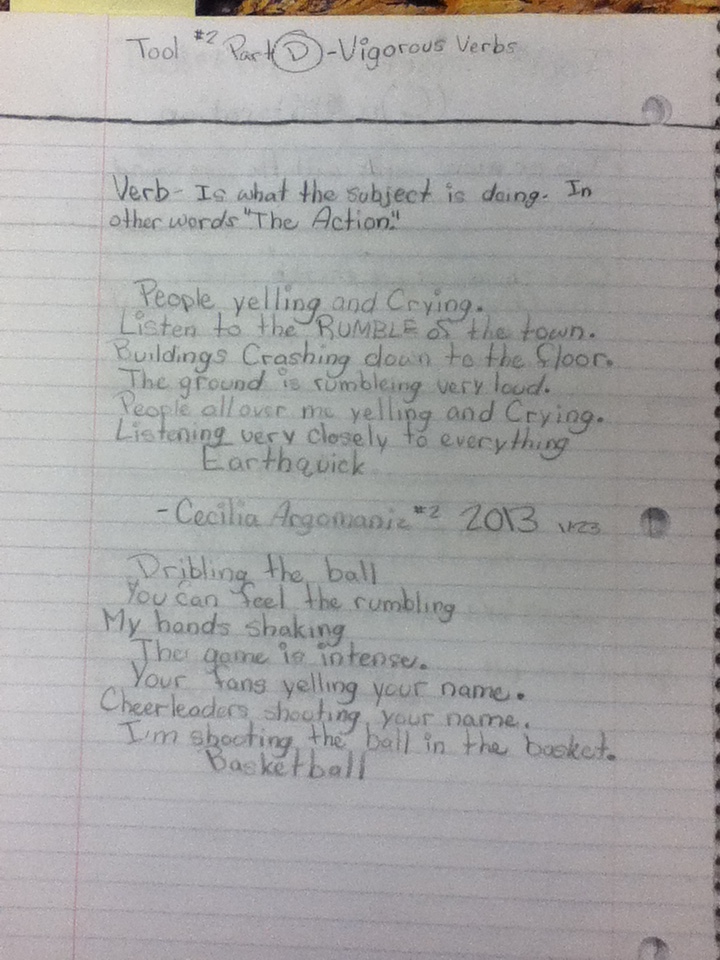 Tool #2 Part D - Vigorous Verbs
Verb - Is what the subject is doing. In
other words "The Action."
People yelling and Crying.
Listen to the RUMBLE of the town.
Buildings Crashing down to the floor.
The ground is rumbleing very loud.
People all over me yelling and Crying.
Listening very closely to everything
Earthquick
- Cecilia #2 2013
Dribling the ball
You can feel the rumbling
My hands shaking
The game is intense.
Your fans yelling your name.
Cheerleaders shooting your name.
I'm shooting the ball in the basket.
Basketball